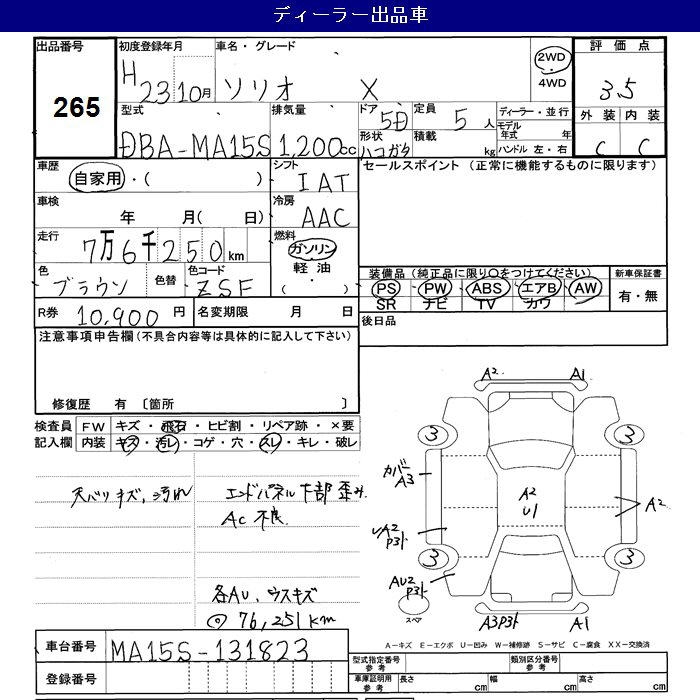 ディーラー出品車
出品番号
265
初度登録年月
H 23 10月
車名・グレード
ソリオ X
2WD
4WD
評価点
3.5
外装 内装
C C
型式
DBA-MA15S
排気量
1,200cc
ドア
5D
定員
5人
形状
ハコガタ
積載
kg
ディーラー・並行
モデル年式 年
ハンドル 左・右
車歴
自家用・( )
シフト
IAT
車検
年 月( 日)
冷房
AAC
走行
7万6千250km
燃料
ガソリン
軽油
・( )
色
ブラウン
色替
色コード
ZSF
R券 10,900円
名変期限 月 日
セールスポイント (正常に機能するものに限ります)
装備品(純正品に限り○をつけてください)
PS PW ABS エアB AW
SR ナビ TV カワ
新車保証書
有・無
後日品
注意事項申告欄(不具合内容等は具体的に記入して下さい)
修復歴 有 〔箇所 〕
検査員 FW キズ・飛石・ヒビ割・リペア跡・×要
記入欄 内装 キズ・汚レ・コゲ・穴・スレ・キレ・破レ
天バリキズ、汚れ
エンドパネル下部歪み
AC不良
各AU、ウスキズ
◎ 76,251km
A2 A1
3 3
カバー
A3
A2
U1
A2
A2
P3ト
3 3
AU2
P3ト
スペア
A3P3ト A1
A－キズ E－エクボ U－凹み W－補修跡 S－サビ C－腐食 XX－交換済
車台番号 MA15S-131823
登録番号
型式指定番号
参考
類別区分番号
参考
車庫証明用
参考
長さ cm 幅 cm 高さ cm